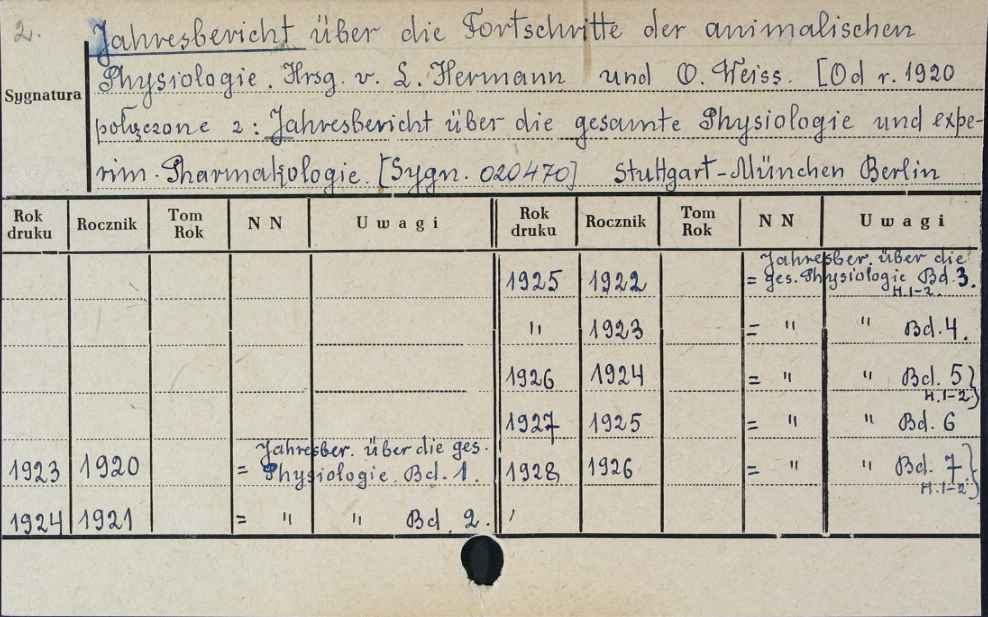 2.
Jahresbericht über die Fortschritte der animalischen
Physiologie. Hrsg. v. L. Hermann und O. Weiss. [Od r. 1920
Sygnatura
połączone z: Jahresbericht über die gesamte Physiologie und expe-
rim. Pharmakologie. [Sygn. 020470] Stuttgart-München Berlin
Rok druku Rocznik Tom Rok NN Uwagi Rok druku Rocznik Tom Rok NN Uwagi
1925 1922 = Jahresber. über die ges. Physiologie Bd. 3. H.1-2.
" 1923 = " " Bd. 4.
1926 1924 = " " Bd. 5} H.1-2}
1927 1925 = " " Bd. 6
1923 1920 = Jahresber. über die ges. Physiologie. Bd. 1.
1928 1926 = " " Bd. 7} H.1-2}
1924 1921 = " " Bd. 2.